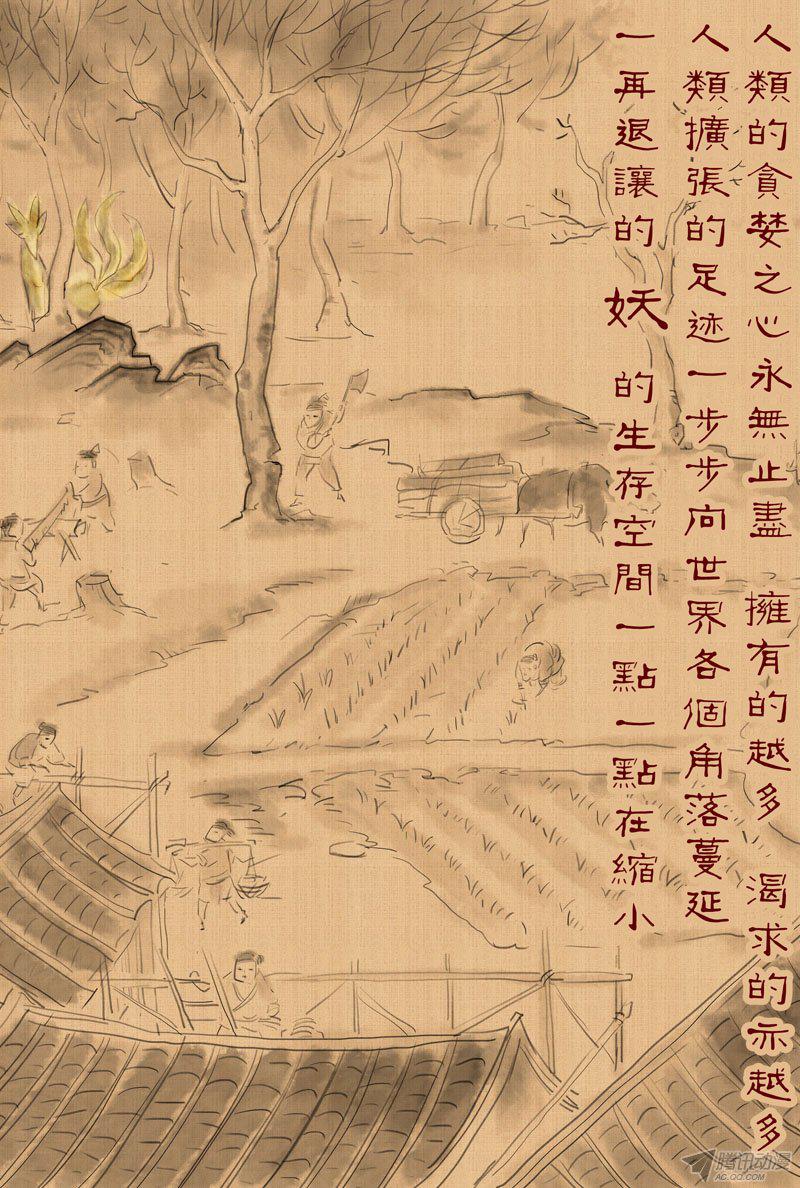 人類的貪婪之心永無止盡 擁有的越多 渴求的亦越多
人類擴張的足迹一步步向世界各個角落蔓延
一再退讓的 妖 的生存空間一點一點在縮小
腾讯动漫
AC.QQ.COM